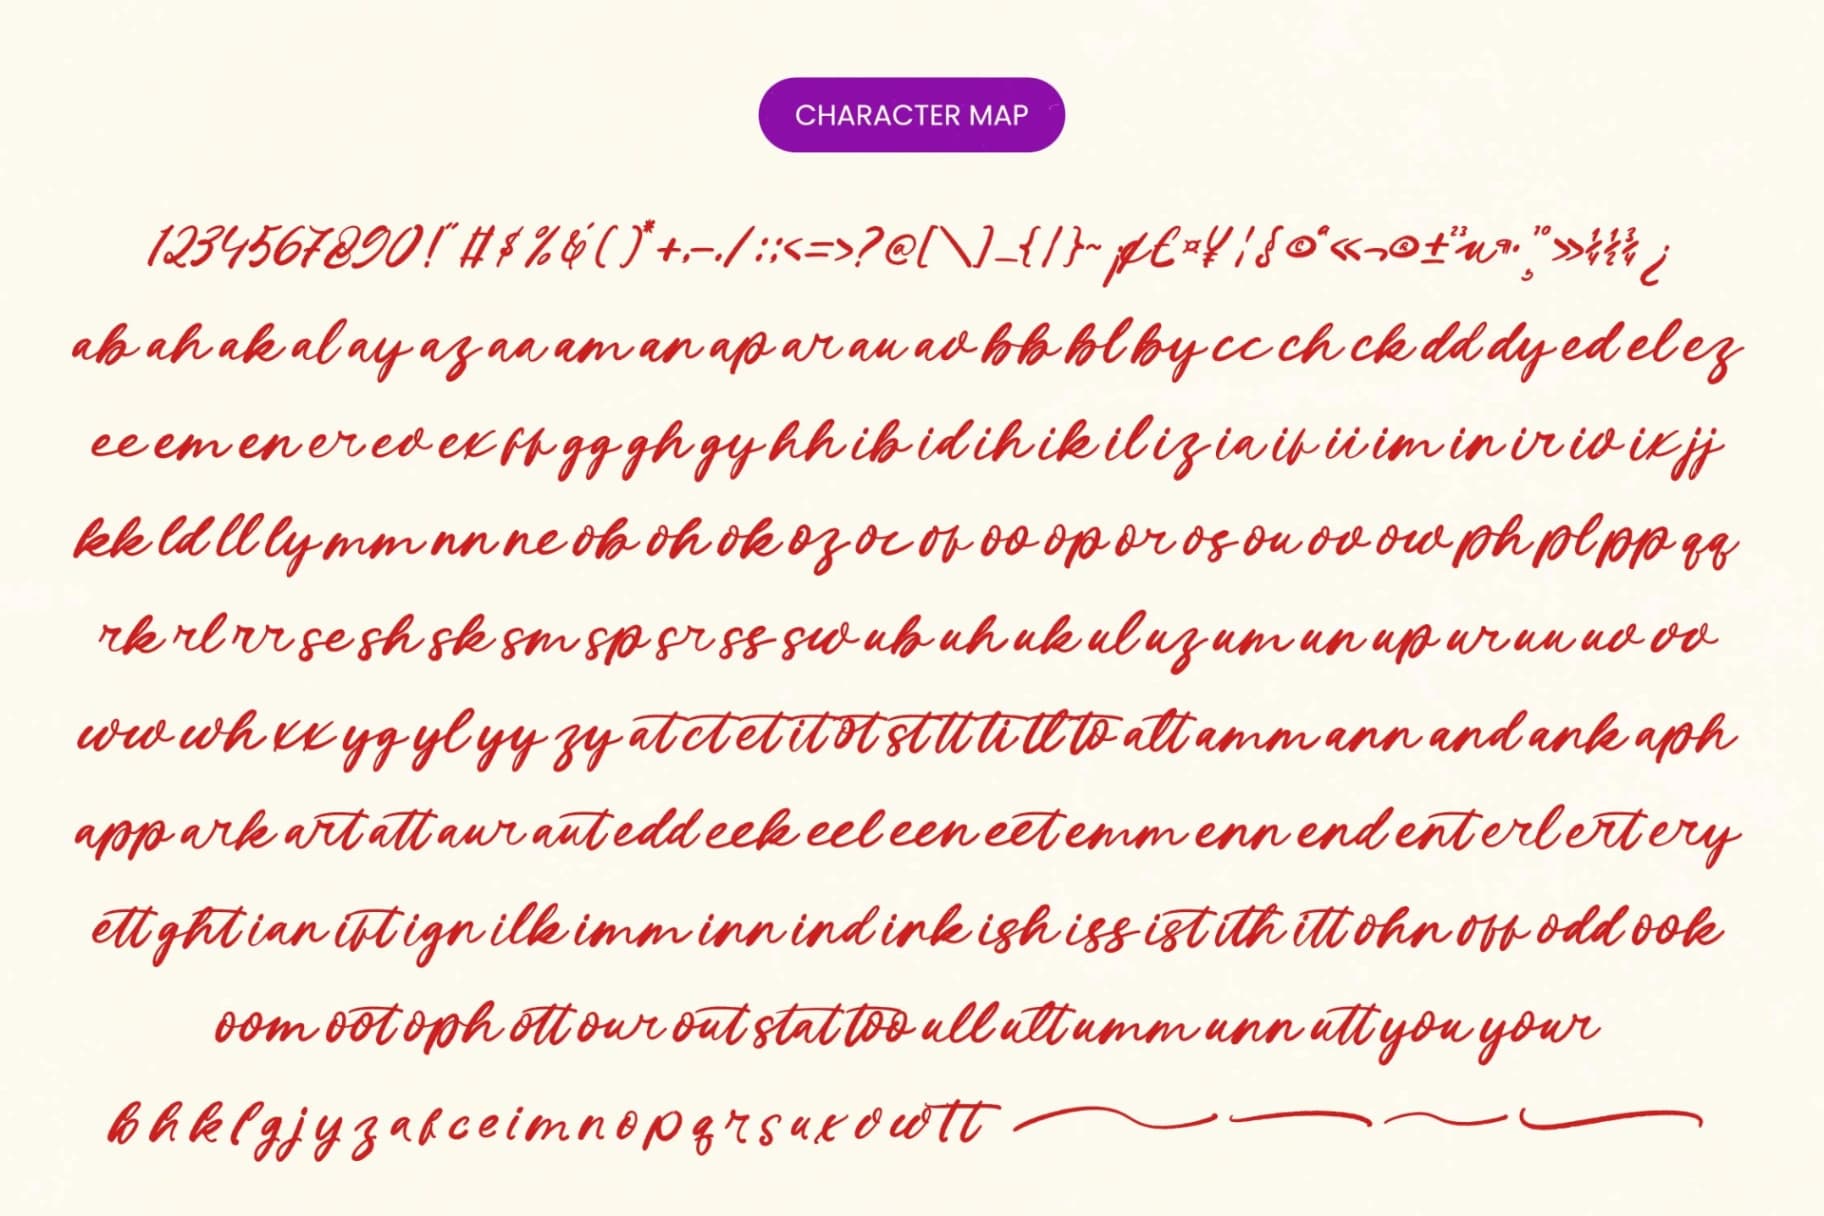 CHARACTER MAP
1234567890!"#$%&'()*+,-./:;<=>?@[\]_{|}~¡¢£¤¥¦§©ª«¬®±²³µ¶·¸¹º»¼½¾¿
ab ah ak al ay az aa am an ap ar au av bb bl by cc ch ck dd dy ed el ez
ee em en er ev ex ff gg gh gy hh ib id ih ik il iz ia if ii im in ir iv ix jj
kk ld ll ly mm nn ne ob oh ok oz oc of oo op or os ou ov ow ph pl pp qq
rk rl rr se sh sk sm sp sr ss sw ub uh uk ul uz um un up ur uu uv vv
ww wh xx yg yl yy zy at ct et it ot st tt ti tl to alt amm ann and ank aph
app ark art att aur aut edd eek eel een eet emm enn end ent erl ert ery
ett ght ian ift ign ilk imm inn ind ink ish iss ist ith itt ohn off odd ook
oom oot oph ott our out stat too ull ult umm unn utt you your
b h k l g j y z a f c e i m n o p q r s u x v w t t